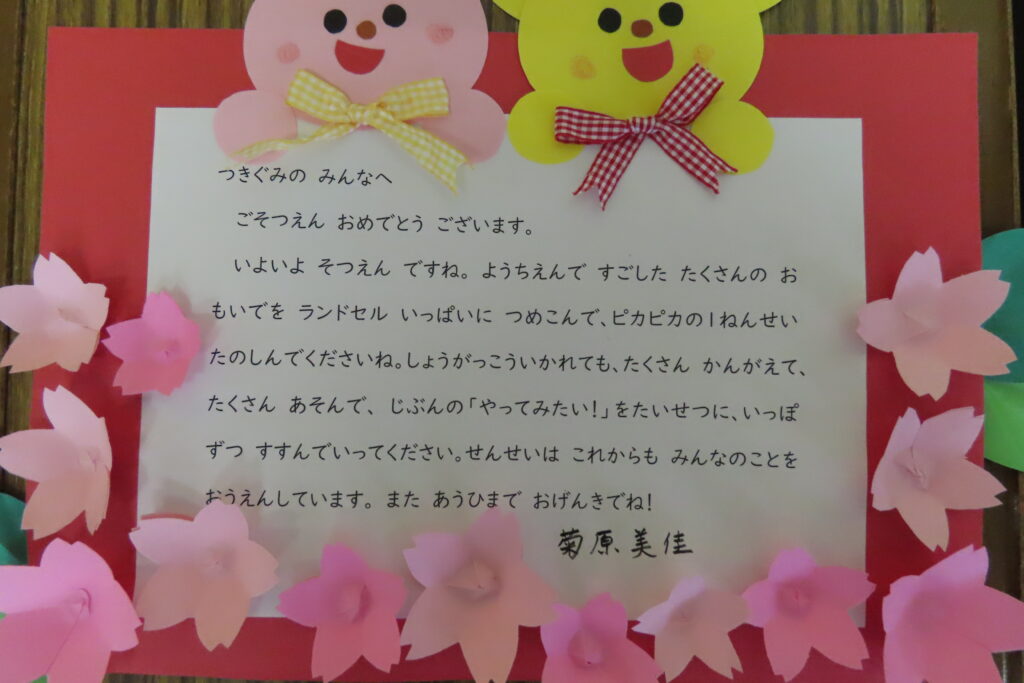 つきぐみの みんなへ
ごそつえん おめでとう ございます。
いよいよ そつえん ですね。ようちえんで すごした たくさんの お
もいでを ランドセル いっぱいに つめこんで、ピカピカの1ねんせい
たのしんでくださいね。しょうがっこういかれても、たくさん かんがえて、
たくさん あそんで、 じぶんの「やってみたい!」をたいせつに、いっぽ
ずつ すすんでいってください。せんせいは これからも みんなのことを
おうえんしています。また あうひまで おげんきでね!
菊原美佳